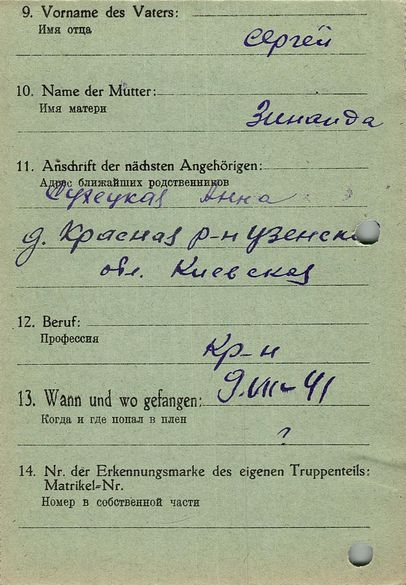 9. Vorname des Vaters:
Имя отца
Сергей
10. Name der Mutter:
Имя матери
Зинаида
11. Anschrift der nächsten Angehörigen:
Адрес ближайших родственников
Анна
д. Красная р-н Узенск
обл. Киевская
12. Beruf:
Профессия
Кр-н
13. Wann und wo gefangen:
9.VIII-41
Когда и где попал в плен
?
14. Nr. der Erkennungsmarke des eigenen Truppenteils:
Matrikel-Nr.
Номер в собственной части